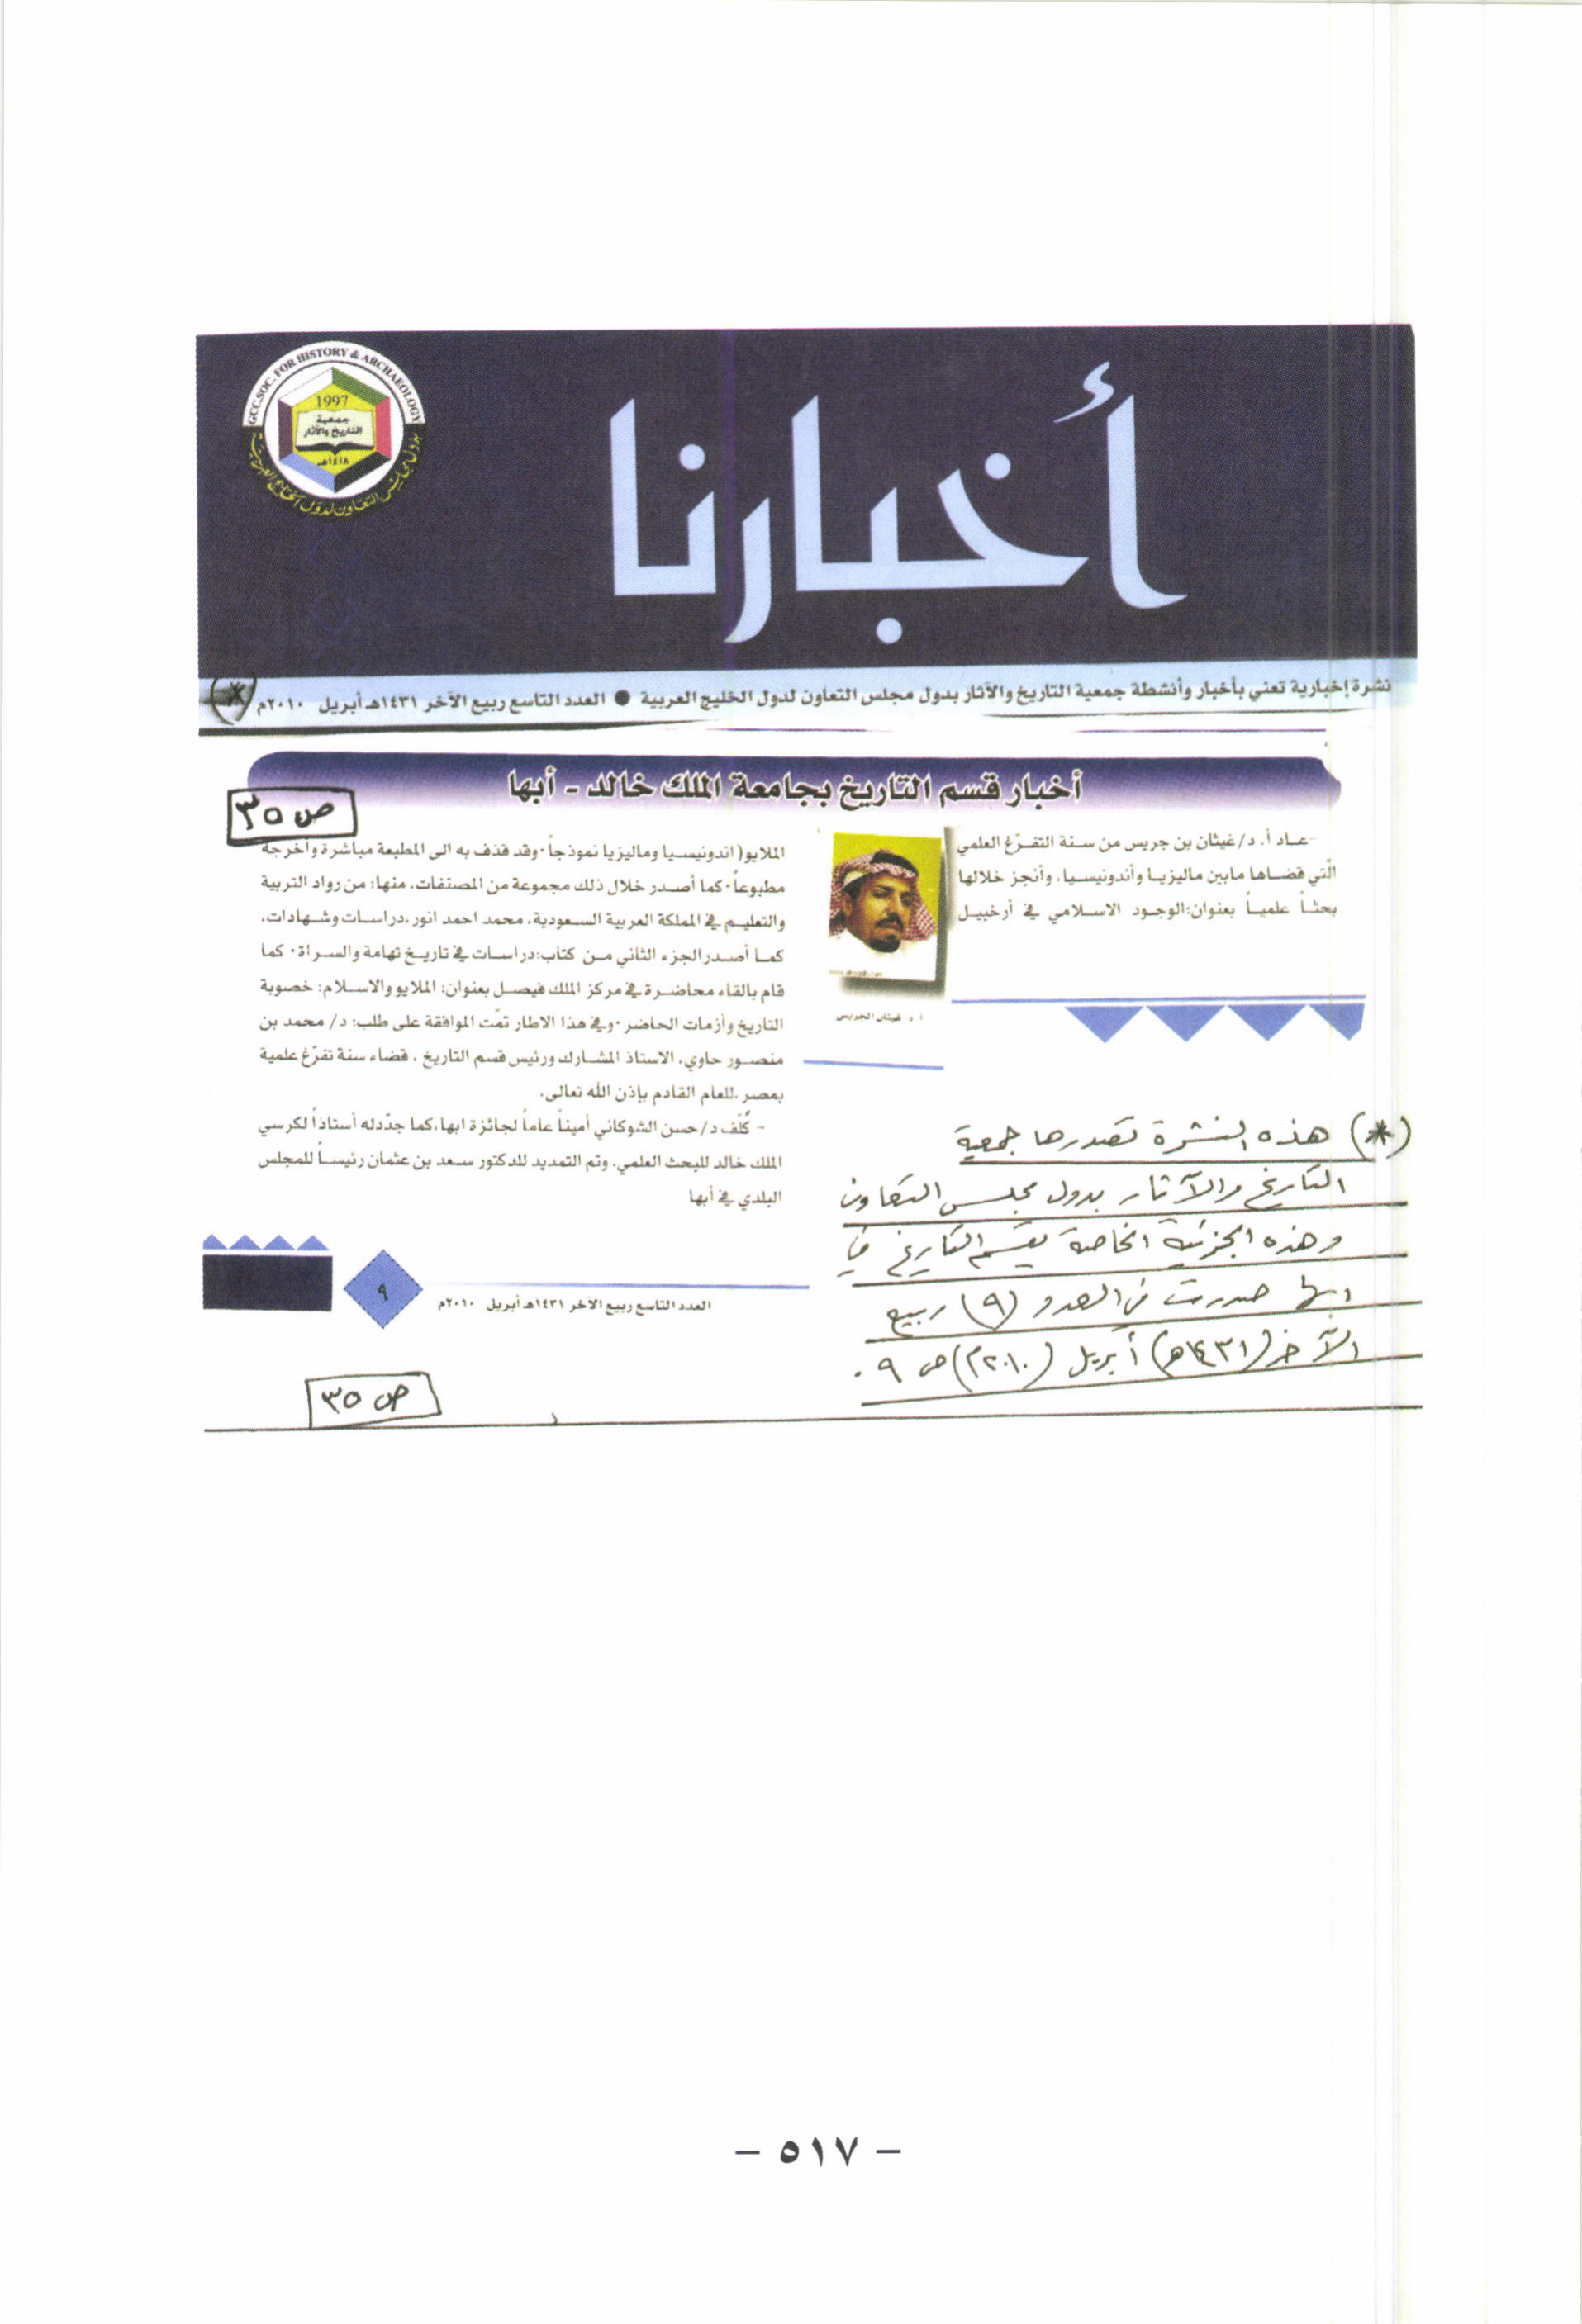 GCC.SOC. FOR HISTORY & ARCHAEOLOGY
1997
جمعية
التاريخ والآثار
١٤١٨هـ
بدول مجلس التعاون لدول الخليج العربية
أخبارنا
نشرة إخبارية تعني بأخبار وأنشطة جمعية التاريخ والآثار بدول مجلس التعاون لدول الخليج العربية ● العدد التاسع ربيع الآخر ١٤٣١هـ أبريل ٢٠١٠م
(*)
أخبار قسم التاريخ بجامعة الملك خالد - أبها
ص ٣٥
-عاد أ. د/غيثان بن جريس من سنة التفرّغ العلمي
الّتي قضاها مابين ماليزيا وأندونيسيا، وأنجز خلالها
بحثاً علمياً بعنوان:الوجود الاسلامي في أرخبيل
أ. د. غيثان الجريس
الملايو( اندونيسيا وماليزيا نموذجاً٠وقد قذف به الى المطبعة مباشرة وأخرجه
مطبوعاً٠كما أصدر خلال ذلك مجموعة من المصنفات، منها: من رواد التربية
والتعليم في المملكة العربية السعودية، محمد احمد انور،دراسات وشهادات،
كما أصدرالجزء الثاني من كتاب:دراسات في تاريخ تهامة والسراة٠ كما
قام بالقاء محاضرة في مركز الملك فيصل بعنوان: الملايو والاسلام: خصوبة
التاريخ وأزمات الحاضر٠وفي هذا الاطار تمّت الموافقة على طلب: د/ محمد بن
منصور حاوي، الاستاذ المشارك ورئيس قسم التاريخ ، قضاء سنة تفرّغ علمية
بمصر،للعام القادم بإذن الله تعالى،
- كُلّف د/حسن الشوكاني أميناً عاماً لجائزة ابها،كما جدّدله أستاذاً لكرسي
الملك خالد للبحث العلمي. وتم التمديد للدكتور سعد بن عثمان رئيساً للمجلس
البلدي في أبها
٩
العدد التاسع ربيع الآخر ١٤٣١هـ أبريل ٢٠١٠م
(*) هذه النشرة تصدرها جمعية
التاريخ والآثار بدول مجلس التعاون
وهذه الجزئية الخاصة بقسم التاريخ في
ابها صدرت في العدد (٩) ربيع
الآخر (١٤٣١هـ) أبريل (٢٠١٠م) ص ٩ .
ص ٣٥
- ٥١٧ -